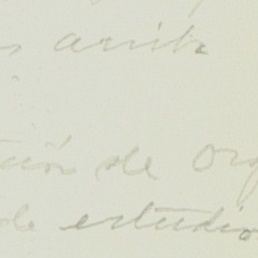 s arriba
ción de Org
de estudio